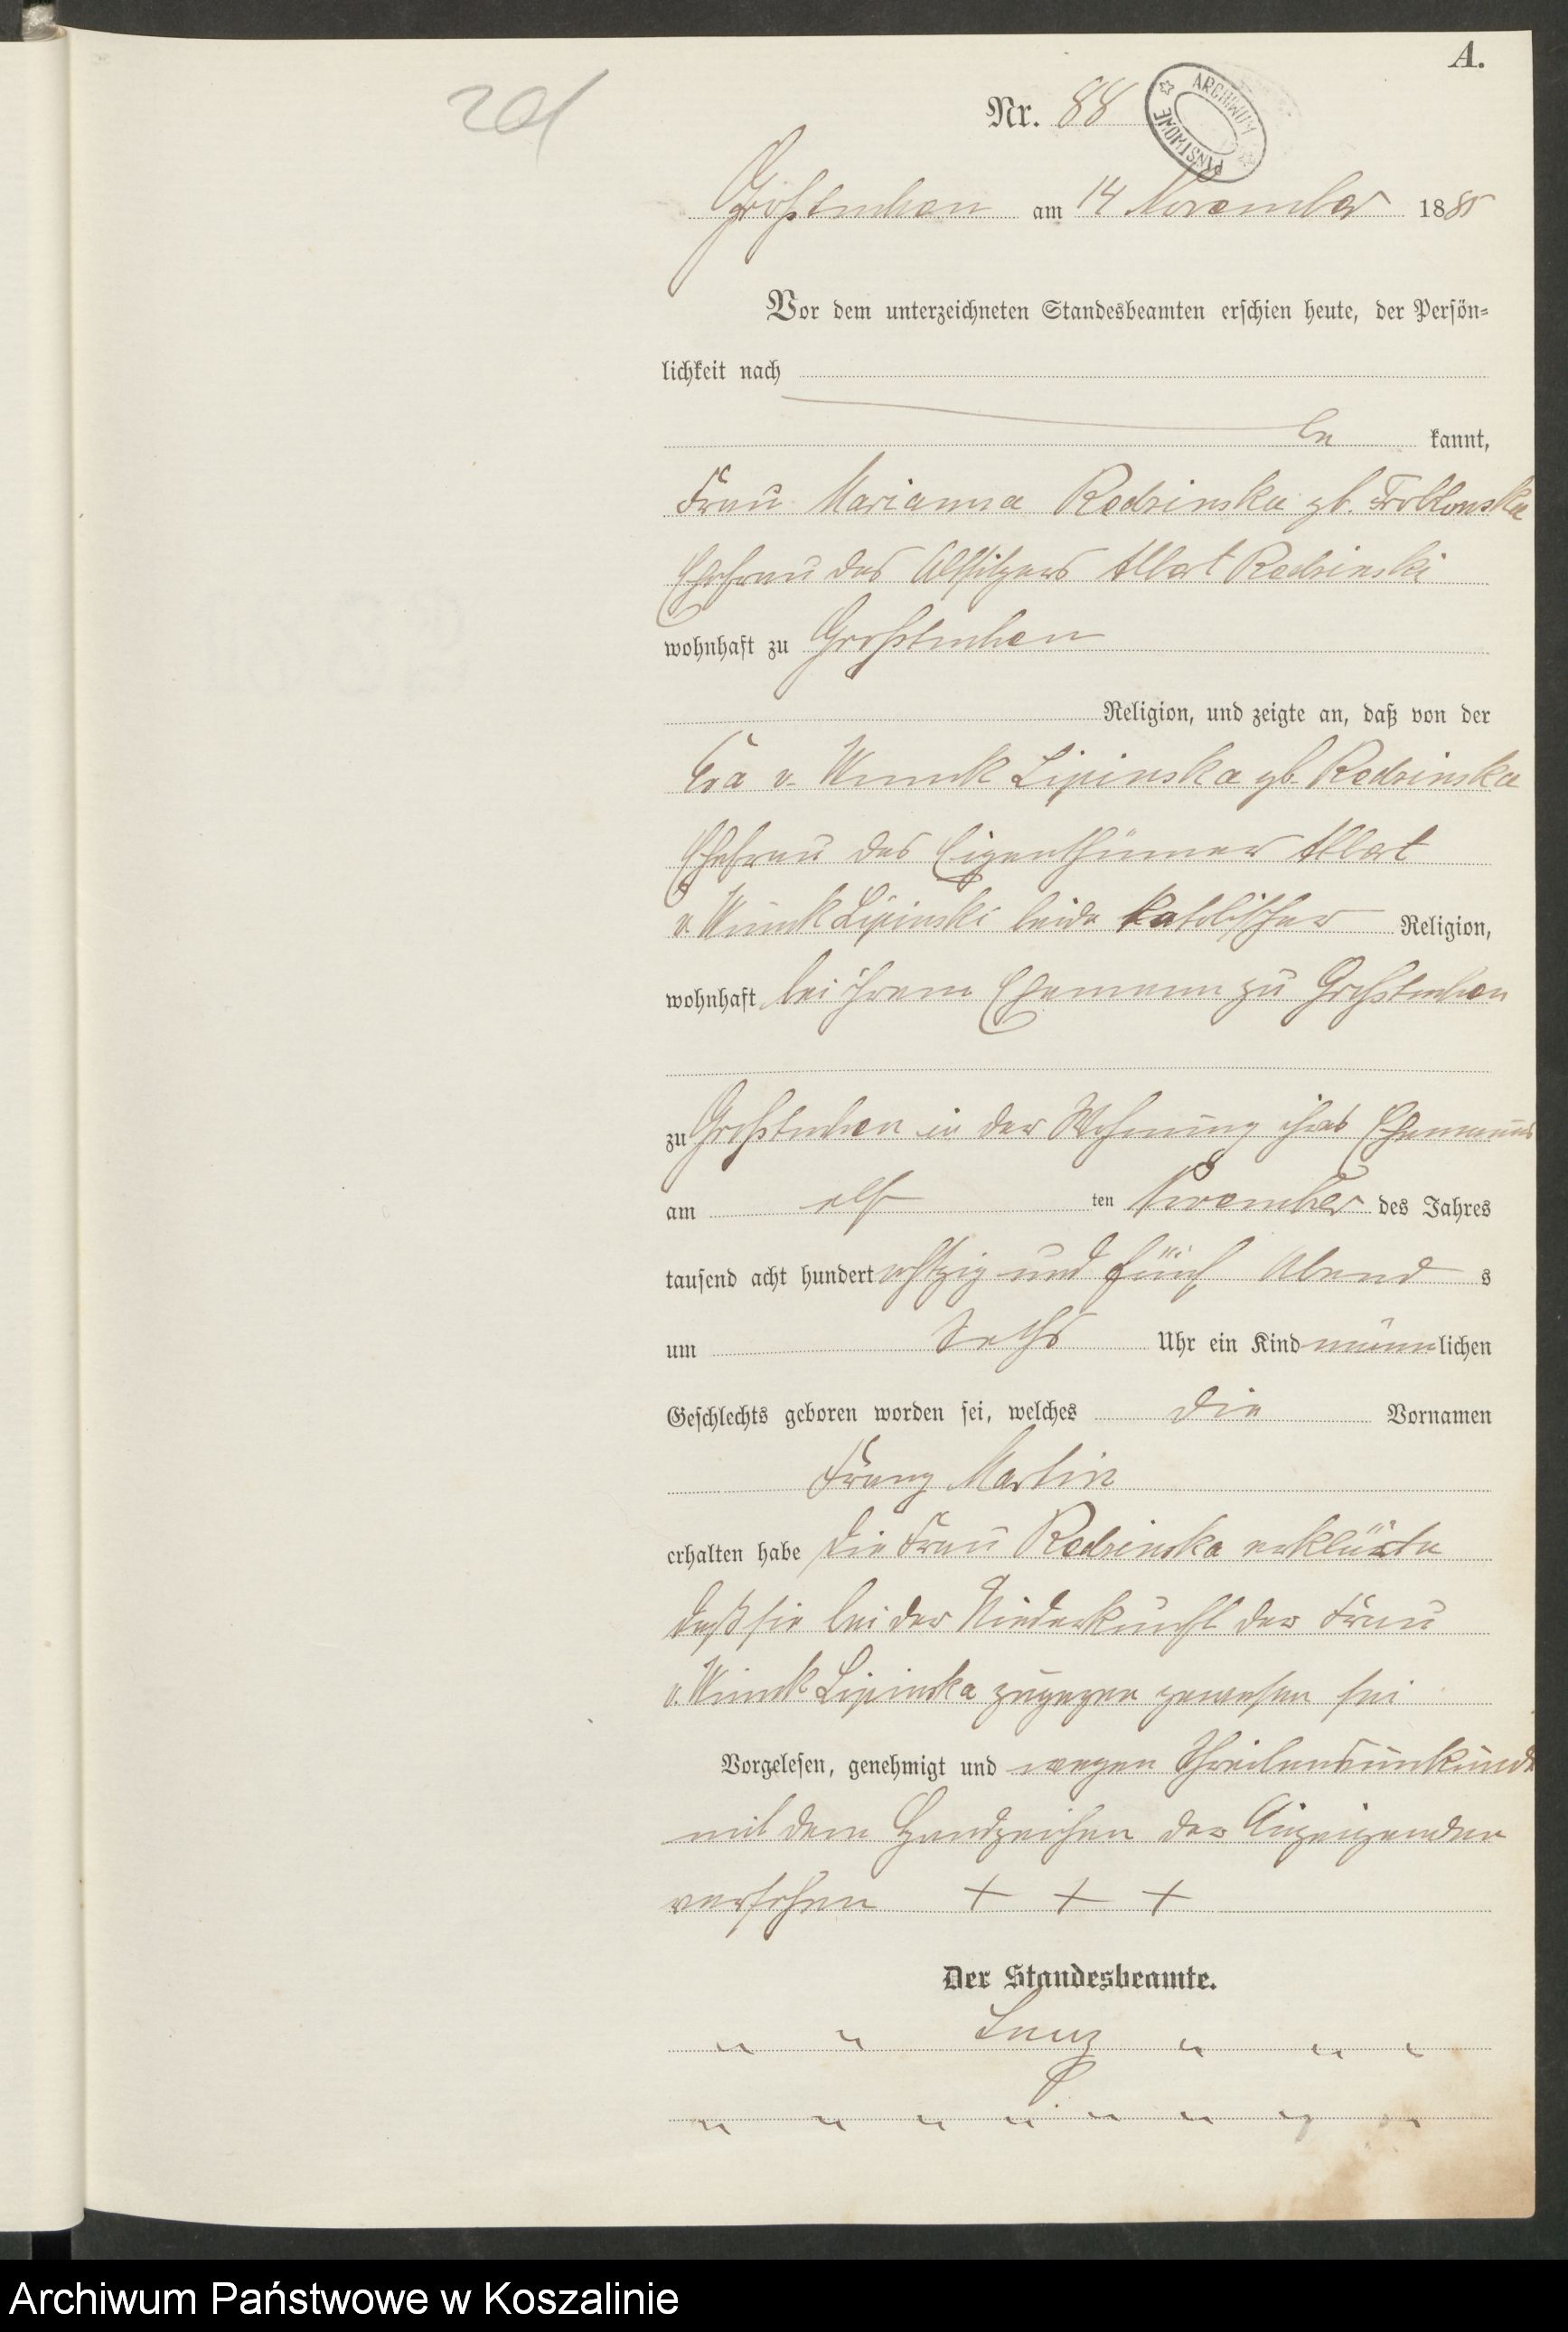 A.
201
Nr. 88
ARCHIWUM PAŃSTWOWE
Großtuchen am 14 November 1885
Vor dem unterzeichneten Standesbeamten erschien heute, der Persön-
lichkeit nach
be kannt,
Frau Marianna Redzinska gb.
Ehefrau des Altsitzers Albert Redzinski
wohnhaft zu Großtuchen
Religion, und zeigte an, daß von der
Eva v. Wnuck Lipinska gb. Redzinska
Ehefrau des Eigenthümer Albert
v Wnuck Lipinski beide katolischer Religion,
wohnhaft bei ihrem Ehemann zu Großtuchen
zu Großtuchen in der Wohnung ihres Ehemanns
am elf ten November des Jahres
tausend acht hundert achtzig und fünf Abend s
um sechs Uhr ein Kind männlichen
Geschlechts geboren worden sei, welches die Vornamen
Franz Martin
erhalten habe die Frau Redzinska erklärte
daß sie bei der Niederkunft der Frau
v. Wnuck Lipinska zugegen gewesen sei
Vorgelesen, genehmigt und wegen Schreibensunkunde
mit dem Handzeichen der Anzeigenden
versehen + + +
Der Standesbeamte.
Archiwum Państwowe w Koszalinie